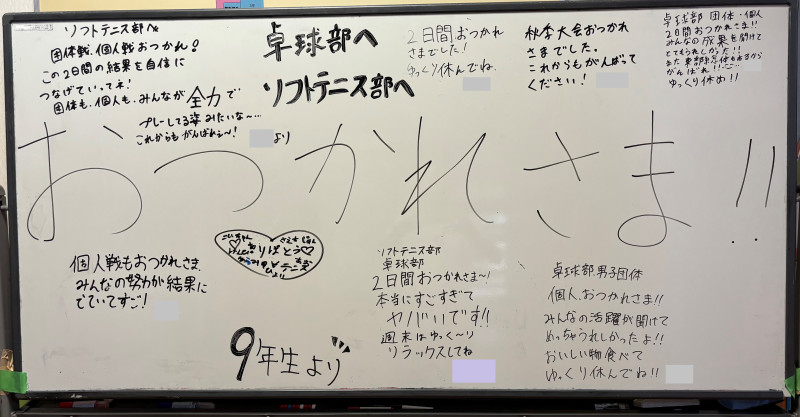 ソフトテニス部へ
団体戦、個人戦おつかれ!
この2日間の結果を自信に
つなげていってネ!
団体も、個人も、みんなが全力で
プレーしてる姿みたいな~…
これからもがんばれぇ~!
より
卓球部へ
ソフトテニス部へ
2日間おつかれ
さまでした!
ゆっくり休んでね
秋季大会おつかれ
さまでした。
これからもがんばって
ください!
卓球部 団体・個人
2日間おつかれさま!!
みんなの成果を聞けて
とてもうれしかった!!
また東部総体もあるから
がんばれ!!
ゆっくり休め!!
おつかれさま!!
個人戦もおつかれさま
みんなの努力が結果に
でていてすご!
ありがとう
テニス
ソフトテニス部
卓球部
2日間おつかれさま~!
本当にすごすぎて
ヤバいです!!
週末はゆっく~り
リラックスしてね
卓球部男子団体
個人、おつかれさま!!
みんなの活躍が聞けて
めっちゃうれしかったよ!!
おいしい物食べて
ゆっくり休んでね!!
9年生より